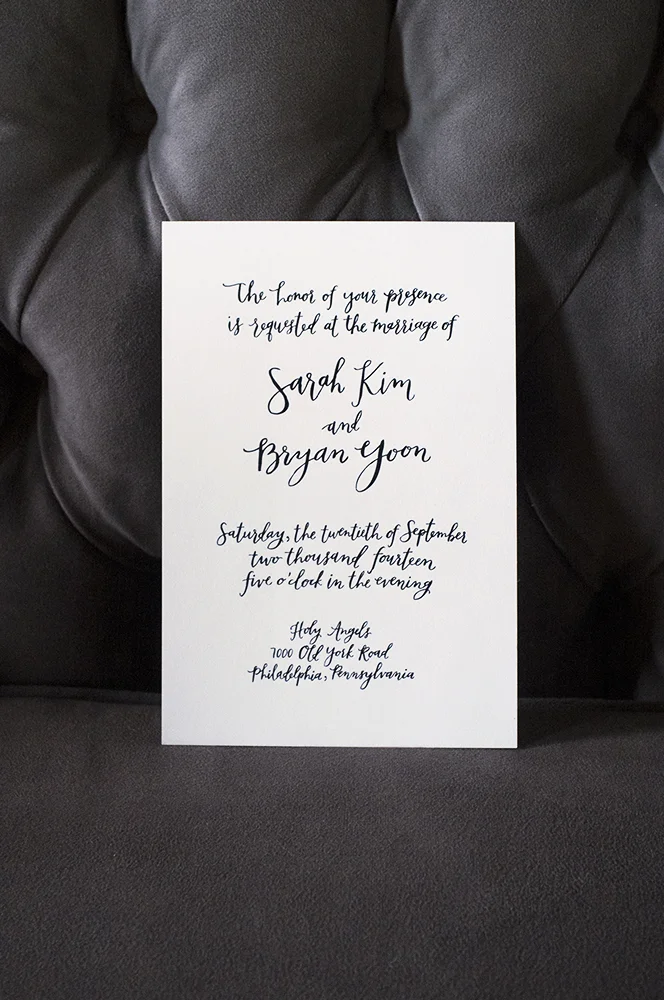 The honor of your presence
is requested at the marriage of
Sarah Kim
and
Bryan Yoon
Saturday, the twentieth of September
two thousand fourteen
five o'clock in the evening
Holy Angels
7000 Old York Road
Philadelphia, Pennsylvania